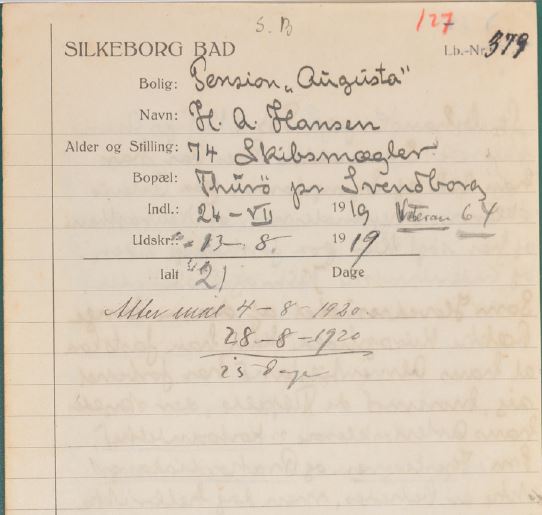 S. B
127
SILKEBORG BAD
Lb.-Nr. 379
Bolig: Pension „Augusta"
Navn: H. A. Hansen
Alder og Stilling: 74 Skibsmægler
Bopæl: Thurö pr Svendborg
Indl.: 24 - VII 1919 Veteran 64
Udskr.: 13 - 8. 1919
Ialt 21 Dage
Atter inal 4 - 8 - 1920.
28 - 8 - 1920
25 Dage